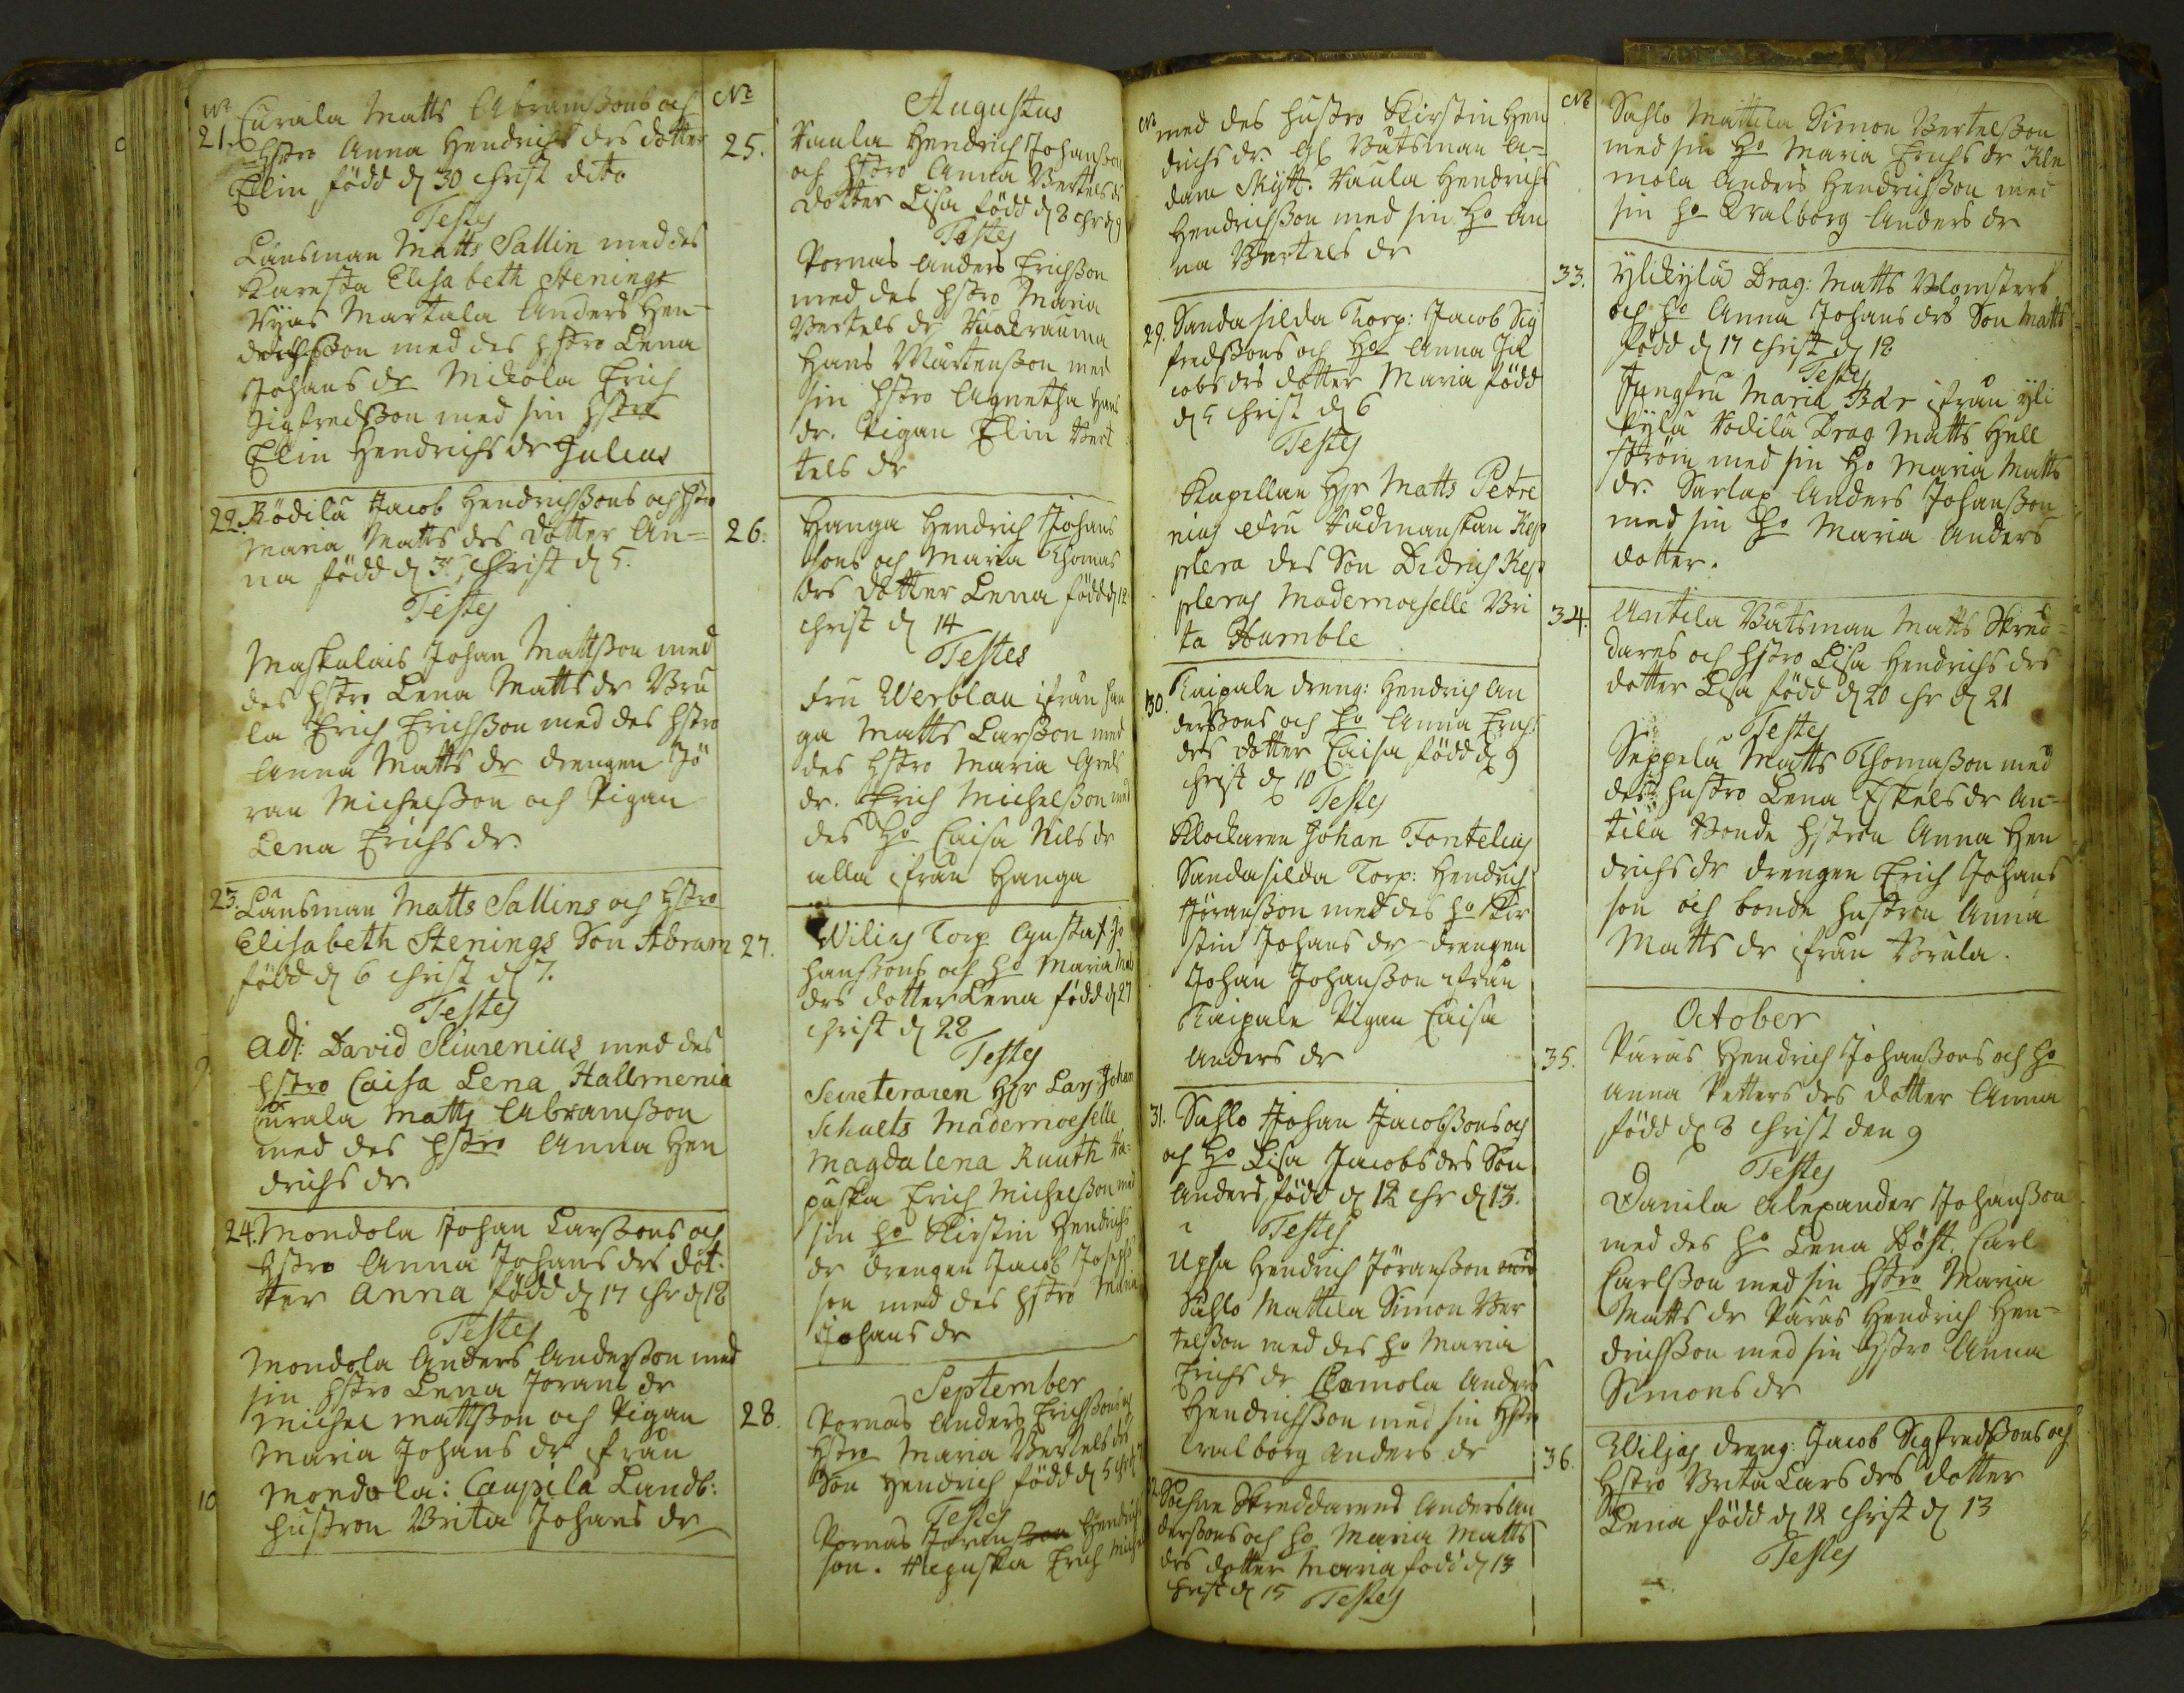 No
21. Curala Matts Abramßons och
hstro Anna Hendrichs drs dotter
Elin född d 30 christ dito
Testes
Länsman Matts Sallin med des
Käresta Elisabeth Stenings
Nyas Martala Anders Hen-
drichßon med des hstro Lena
Johans dr Mickola Erich
Sigfredßon med sin hstro
Elin Hendrichs dr Julius
22. Rödilä Jacob Hendrichßons och hstro
Maria Matts drs dotter An=
na född d 3 Christ d 5.
Testes
Maskalais Johan Mattßon med
des hstro Lena Matts dr Vru
la Erich Erichßon med des hstro
Anna Matts dr drengen Jö
ran Michelßon och Pigan
Lena Erichs dr.
23. Länsman Matts Sallins och hstro
Elisabeth Stenings Son Abram
född d 6 christ d 7.
Testes
Adj: David Sciurenius med des
hstro Caisa Lena Hallmenia
Curala Matts Abramßon
med des hstro Anna Hen
drichs dr.
24. Mondola Johan Larßons och
hstro Anna Johans drs dot-
ter Anna född d 17 chr d 18
Testes
Mondola Anders Anderßon med
sin hstro Lena Jorans dr
Michel Mattßon och Pigan
Maria Johans dr ifrån
Mondola: Caupila Landb:
hustron Brita Johans dr
No
Augustus
25. Kaula Hendrich Johanßon
och hstro Anna Bertels drs
dotter Lisa född d 8 chr d 9
Testes
Pornas Anders Erichßon
med des hstro Maria
Bertels dr
Hans Mårtenßon med
sin hstro Agnetha Hans
dr. Pigan Elin Bert
tels dr
26. Hanga Hendrich Johans
sons och Maria Thomas
drs dotter Lena född d 12
christ d 14
Testes
Fru Werblau ifrån han
ga Matts Larßon med
des hstro Maria
dr. Erich Michelßon med
des ho Caisa Nils dr
alla ifrån Hanga
27. Wilias Torp Gustaf Jo
hanßons och ho Maria Matts
drs dotter Lena född d 27
christ d 28
Testes
Secreteraren Hr Lars Johan
Schults Mademoeselle
Magdalena Ruuth Ha=
puska Erich Michelßon med
sin ho Kirstin Hendrichs
dr drengen Jacob Josephs
son med des hstro Maria
Johans dr
September
28. Pornas Anders Erichßons och
hstro Maria Bertels drs
Son Hendrich född d 5
Testes
Pornas Joran Hendrich
son. Hapuska Erich Michel
No
med des hustro Kirstin Hen
drichs dr. Båtsman A=
dam Mÿtt. Kaula Hendrich
Hendrichßon med sin ho An
na Bertels dr
29. Sandasilda Torp: Jacob Sig
fredßons och ho Anna Ja
cobs drs dotter Maria född
d 5 christ d 6
Testes
Kapellan Hr Matts Petre
nius Fru Kep
plera des Son Didrich Kep
plerus Mademoeselle Bri
ta Humble
30. Kaipale dreng: Hendrich An
derßons och ho Anna Erichs
drs dotter Caisa född d 9
christ d 10
Testes
Klockaren Johan Fontelius
Sandasilda Torp: Hendrich
Jöranßon med des ho Kir
stin Johans dr drengen
Johan Johanßon ifrån
Kaipale Pigan Caisa
Anders dr
31. Sahlo Johan Jacobßons och
och ho Lisa Jacobs drs Son
Anders född d 12 chr d 13.
Testes
Upsa Hendrich Jöranßon
Sahlo Mattila Simon Ber
telßon med des ho Maria
Erichs dr Clemola Anders
Hendrichßon med sin hstro
Walborg Anders dr
32. Skreddarens Anders An
derßons och ho Maria Matts
drs dotter Maria född d 13
christ d 15 Testes
No
Sahlo Mattila Simon Bertelßon
med sin ho Maria Erichs dr Kle
mola Anders Hendrichßon med
sin ho Walborg Anders dr
33. Ylikylä Drag: Matts Blomsters
och ho Anna Johans drs Son Matts
född d 17 christ d 18
Testes
Jungfru Maria ifrån yli
kylä Kodila Drag Matts Hell
ström med sin ho Maria Matts
dr. Sarlax Anders Johanßon
med sin ho Maria Anders
dotter.
34. Antila Båtsman Matts Skred=
dares och hstro Lisa Hendrichs drs
dotter Lisa född d 20 chr d 21
Testes
Seppelä Matts Thomaßon med
des hustro Lena Eskels dr An-
tila Bonde hstron Anna Hen
drichs dr drengen Erich Johans
son och bonde hustron Anna
Matts dr ifrån Vrula.
October
35. Päräs Hendrich Johanßons och ho
Anna Petters drs dotter Anna
född d 8 christ den 9
Testes
Danila Alexander Johanßon
med des ho Lena Böst. Carl
Carlßon med sin hstro Maria
Matts dr Päräs Hendrich Hen-
drichßon med sin hstro Anna
Simons dr
36. Wiljas dreng: Jacob Sigfredßons och
hstro Brita Lars drs dotter
Lena född d 12 christ d 13
Testes